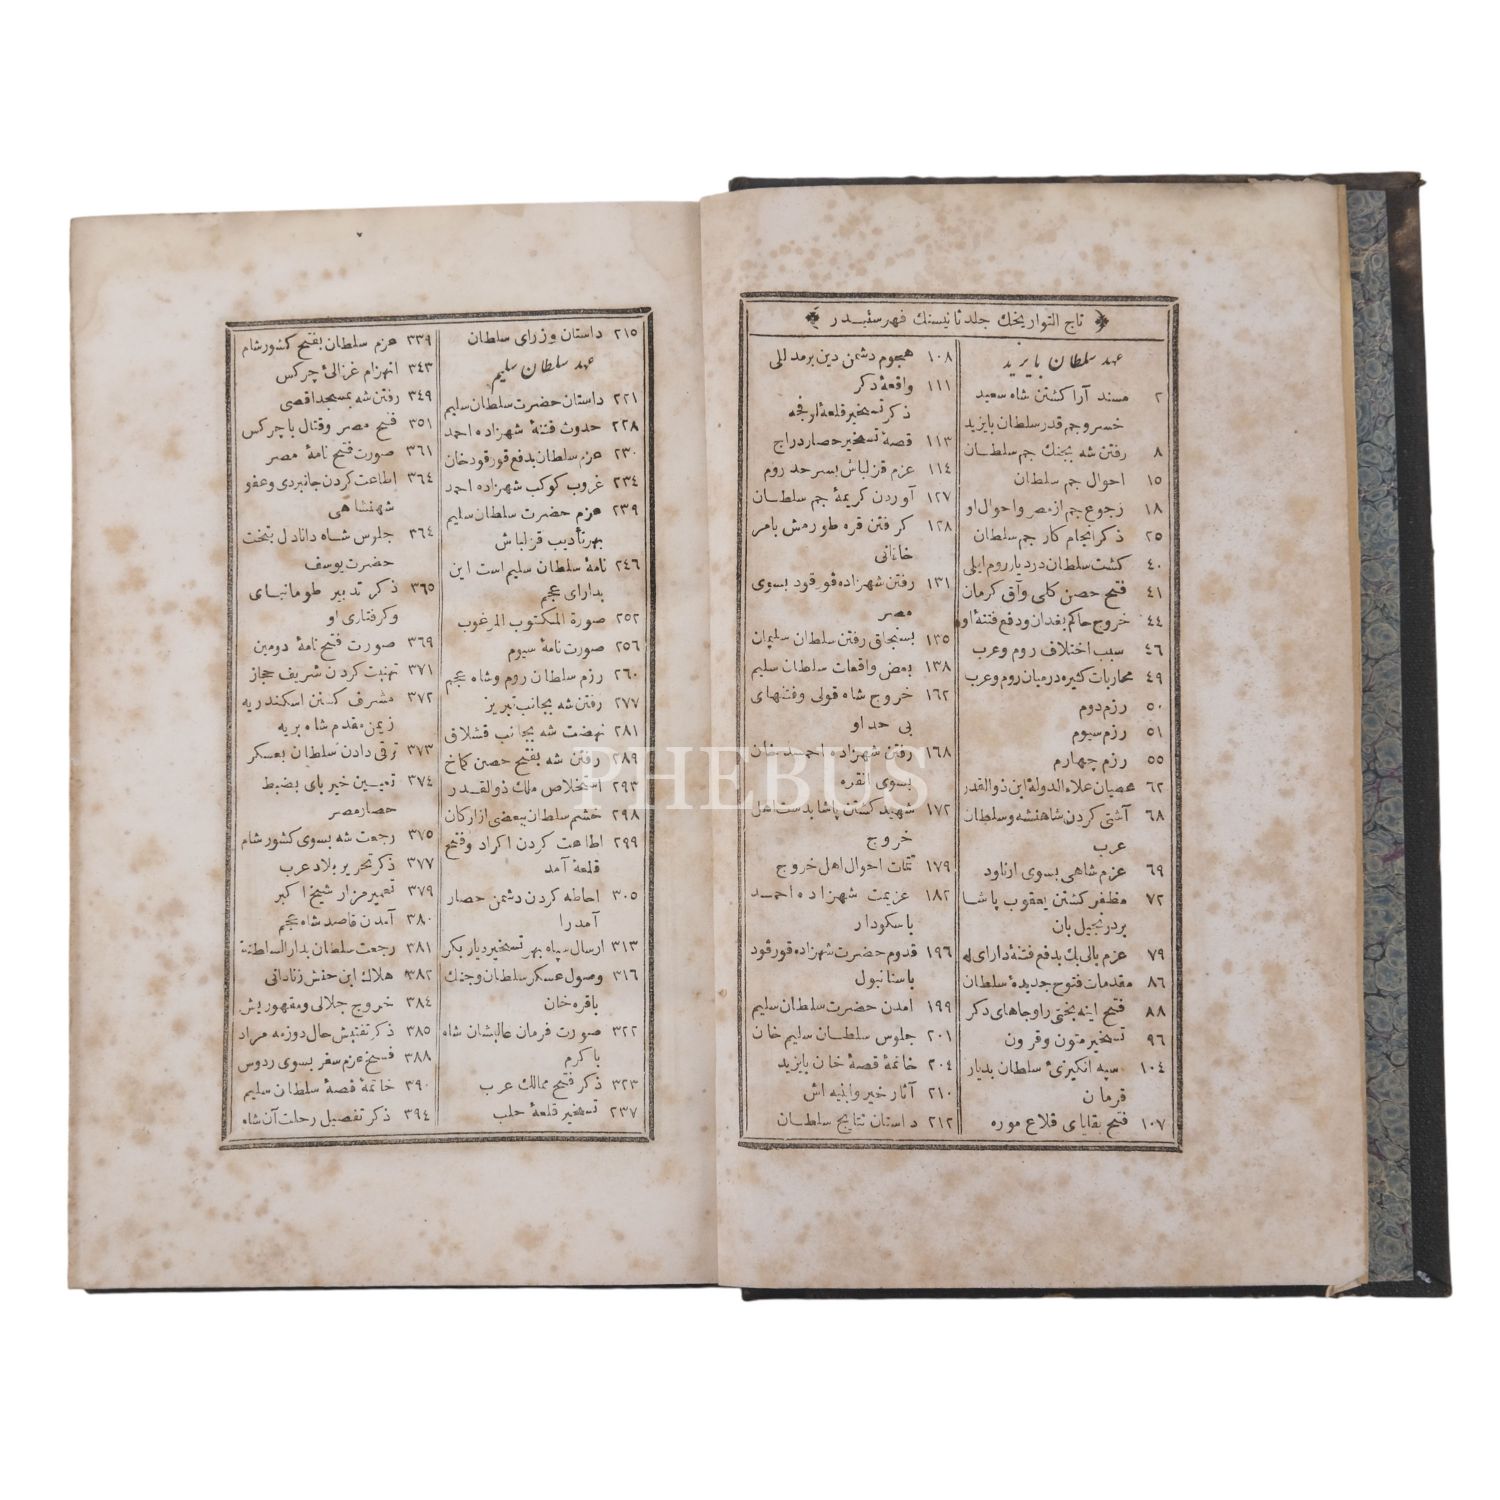 تاج التواریخك جلد ثانیسنك فهرستیدر
عهد سلطان بایزید
٢ مسند آرا کشتن شاه سعید
خسرو جم قدر سلطان بایزید
٨ رفتن شه بجنك جم سلطان
١٥ احوال جم سلطان
١٨ رجوع جم از مصر واحوال او
٢٥ ذکر انجام کار جم سلطان
٤٠ کشت سلطان در دیار روم ایلی
٤١ فتح حصن کلی وآق کرمان
٤٤ خروج حاکم بغدان ودفع فتنهٔ او
٤٦ سبب اختلاف روم وعرب
٤٩ محاربات کثیره درمیان روم وعرب
٥٠ رزم دوم
٥١ رزم سیوم
٥٥ رزم چهارم
٦٢ عصیان علاء الدولة ابن ذوالقدر
٦٨ آشتی کردن شاهنشه وسلطان
عرب
٦٩ عزم شاهی بسوی ارناود
٧٢ مظفر کشتن یعقوب پاشا
بر درنجیل بان
٧٩ عزم بالی بك بدفع فتنهٔ دارای له
٨٦ مقدمات فتوح جدیدهٔ سلطان
٨٨ فتح اینه بختی را وجاهای دکر
٩٦ تسخیر متون وقرون
١٠٤ سپه انکیزئ سلطان بدیار
قرمان
١٠٧ فتح بقایای قلاع موره
١٠٨ هجوم دشمن دین بر مدللی
١١١ واقعهٔ دکر
ذکر تسخیر قلعهٔ اولجه
١١٣ قصهٔ تسخیر حصار دراج
١١٤ عزم قزلباش بسرحد روم
١٢٧ آوردن کریمهٔ جم سلطان
١٢٨ کرفتن قره طورمش بامر
خاقانی
١٣١ رفتن شهزاده قورقود بسوی
مصر
١٣٥ بسنجاق رفتن سلطان سلیمان
١٣٨ بعض واقعات سلطان سلیم
١٦٢ خروج شاه قولی وفتنهای
بی حد او
١٦٨ رفتن شهزاده احمد خان
بسوی انقره
١٧٢ شهید کشتن پاشا بدست اهل
خروج
١٧٩ تتمات احوال اهل خروج
١٨٢ عزیمت شهزاده احمد
باسکودار
١٩٦ قدوم حضرت شهزاده قورقود
باستانبول
١٩٩ امدن حضرت سلطان سلیم
٢٠١ جلوس سلطان سلیم خان
٢٠٤ خاتمهٔ قصهٔ خان بایزید
٢١٠ آثار خیر وابنیه اش
٢١٢ داستان نتایج سلطان
٢١٥ داستان وزرای سلطان
عهد سلطان سلیم
٢٢١ داستان حضرت سلطان سلیم
٢٢٨ حدوث فتنهٔ شهزاده احمد
٢٣٠ عزم سلطان بدفع قورقود خان
٢٣٤ غروب کوکب شهزاده احمد
٢٣٩ عزم حضرت سلطان سلیم
بهر تأدیب قزلباش
٢٤٦ نامهٔ سلطان سلیم است این
بدارای عجم
٢٥٢ صورة المکتوب المرغوب
٢٥٦ صورت نامهٔ سیوم
٢٦٠ رزم سلطان روم وشاه عجم
٢٧٧ رفتن شه بجانب تبریز
٢٨١ نهضت شه بجانب قشلاق
٢٨٩ رفتن شه بفتح حصن کماخ
٢٩٣ استخلاص ملك ذوالقدر
٢٩٨ خشم سلطان ببعضی از ارکان
٢٩٩ اطاعت کردن اکراد وفتح
قلعهٔ آمد
٣٠٥ احاطه کردن دشمن حصار
آمد را
٣١٣ ارسال سپاه بهر تسخیر دیار بکر
٣١٦ وصول عسکر سلطان وجنك
باقره خان
٣٢٢ صورت فرمان عالیشان شاه
باکرم
٣٢٣ ذکر فتح ممالك عرب
٢٣٧ تسخیر قلعهٔ حلب
٣٣٩ عزم سلطان بفتح کشور شام
٣٤٣ انهزام غزالئ چرکس
٣٤٩ رفتن شه بمسجد اقصی
٣٥١ فتح مصر وقتال با چرکس
٣٦١ صورت فتح نامهٔ مصر
٣٦٤ اطاعت کردن جانبردی وعفو
شهنشاهی
٣٦٤ جلوس شاه دانادل بتخت
حضرت یوسف
٣٦٥ ذکر تدبیر طومانبای
وکرفتاری او
٣٦٩ صورت فتح نامهٔ دومین
٣٧١ تهنیت کردن شریف حجاز
٣٧٢ مشرف کشتن اسکندریه
زیمن مقدم شاه بریه
٣٧٣ ترقی دادن سلطان بعسکر
٣٧٤ تعیین خیر بای بضبط
حصار مصر
٣٧٥ رجعت شه بسوی کشور شام
٣٧٧ ذکر تحریر بلاد عرب
٣٧٩ تعمیر مزار شیخ اکبر
٣٨٠ آمدن قاصد شاه عجم
٣٨١ رجعت سلطان بدار السلطنة
٣٨٢ هلاك ابن حنش زنادانی
٣٨٤ خروج جلالی ومقهوریش
٣٨٥ ذکر تفتیش حال دوزمه مراد
٣٨٨ فسخ عزم سفر بسوی ردوس
٣٩٠ خاتمهٔ قصهٔ سلطان سلیم
٣٩٤ ذکر تفصیل رحلت آن شاه
PHEBUS